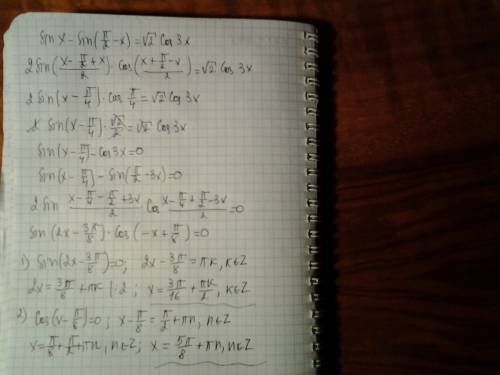 sin x - sin(π/2 - x) = √2 cos 3x
2 sin((x - π/2 + x)/2) · cos((x + π/2 - x)/2) = √2 cos 3x
2 sin(x - π/4) · cos π/4 = √2 cos 3x
2 sin(x - π/4) · √2/2 = √2 cos 3x
sin(x - π/4) - cos 3x = 0
sin(x - π/4) - sin(π/2 - 3x) = 0
2 sin (x - π/4 - π/2 + 3x)/2 cos (x - π/4 + π/2 - 3x)/2 = 0
sin(2x - 3π/8) · cos(-x + π/8) = 0
1) sin(2x - 3π/8) = 0; 2x - 3π/8 = πk, k∈Z
2x = 3π/8 + πk |:2; x = 3π/16 + πk/2, k∈Z
2) cos(x - π/8) = 0; x - π/8 = π/2 + πn, n∈Z
x = π/8 + π/2 + πn, n∈Z; x = 5π/8 + πn, n∈Z